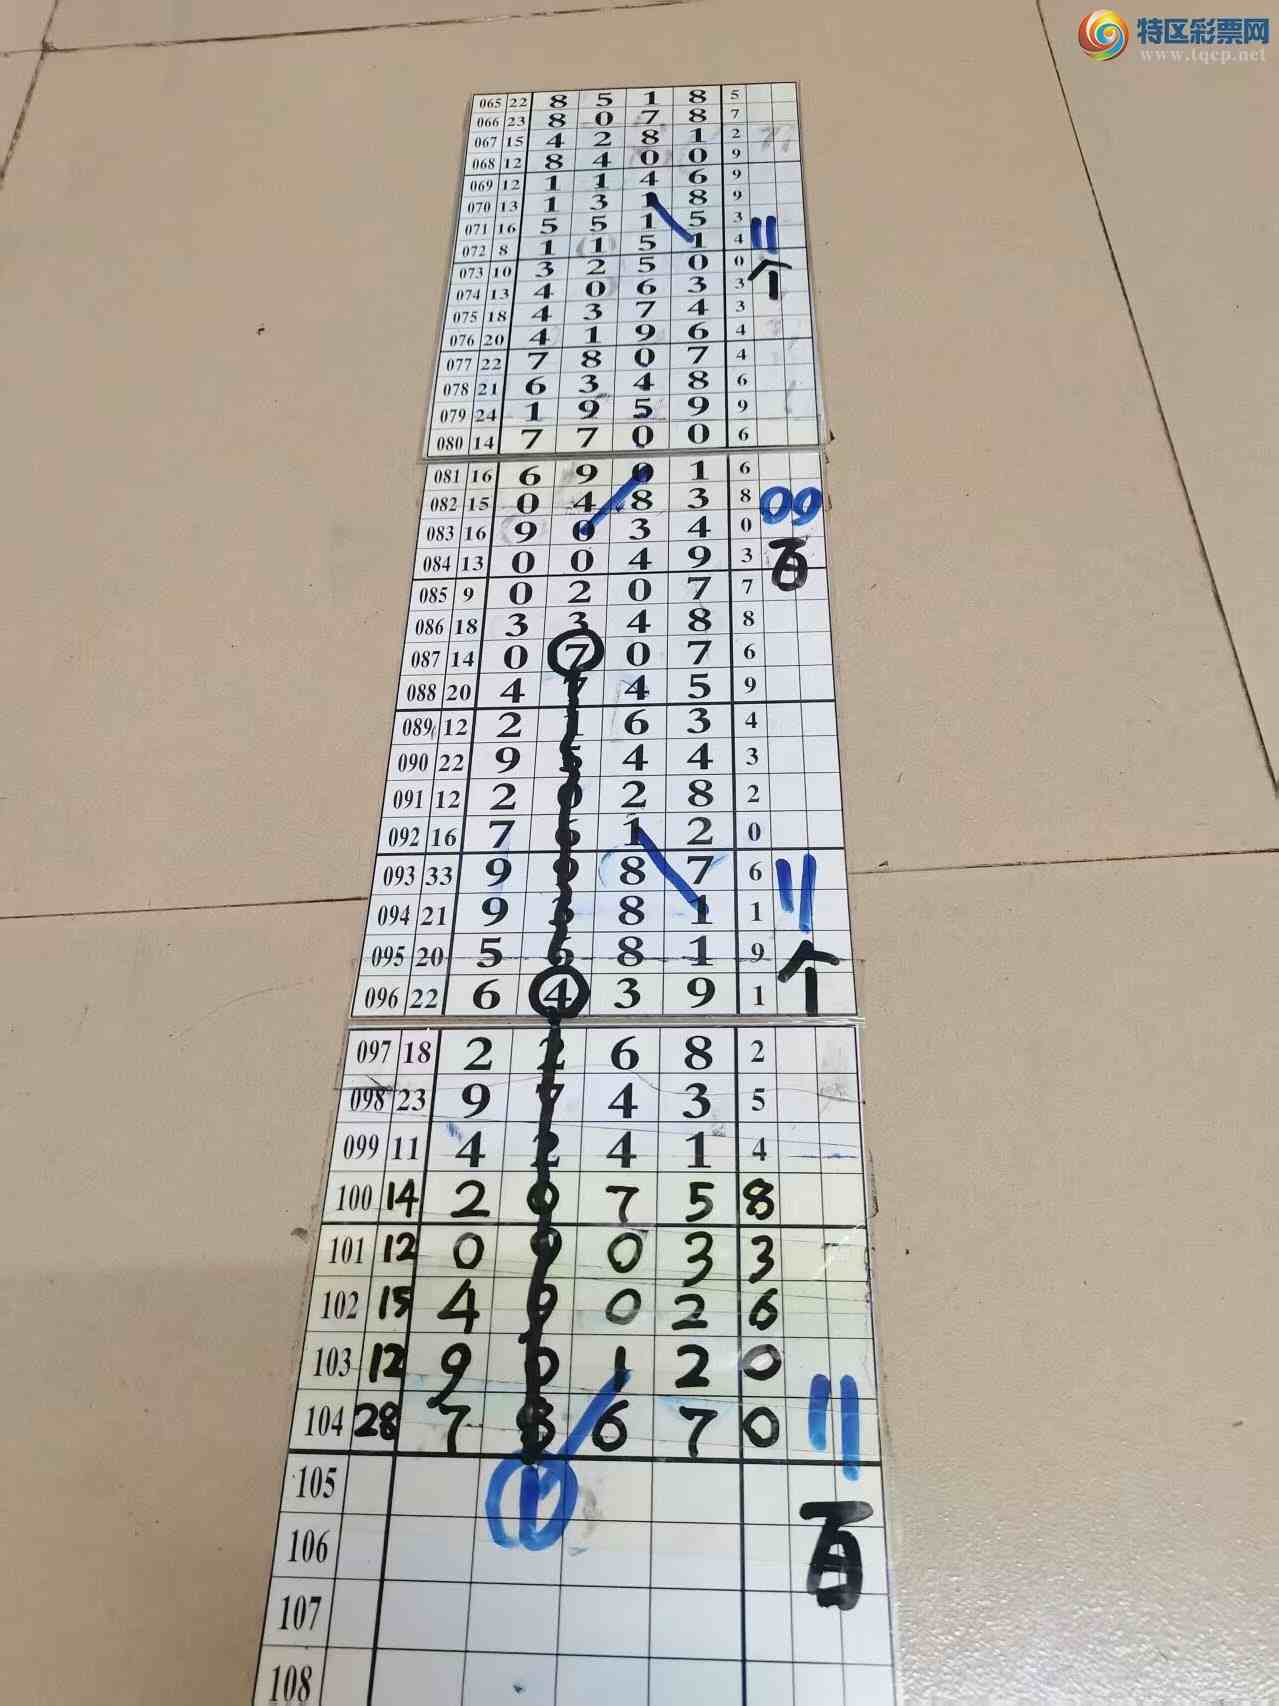 特区彩票网
www.tqcp.net
065 22 8 5 1 8 5
066 23 8 0 7 8 7
067 15 4 2 8 1 2
068 12 8 4 0 0 9
069 12 1 1 4 6 9
070 13 1 3 1 8 9
071 16 5 5 1 5 3
072 8 1 1 5 1 4 11
073 10 3 2 5 0 0 个
074 13 4 0 6 3 3
075 18 4 3 7 4 3
076 20 4 1 9 6 4
077 22 7 8 0 7 4
078 21 6 3 4 8 6
079 24 1 9 5 9 9
080 14 7 7 0 0 6
081 16 6 9 0 1 6
082 15 0 4 8 3 8 00
083 16 9 0 3 4 0
084 13 0 0 4 9 3 百
085 9 0 2 0 7 7
086 18 3 3 4 8 8
087 14 0 7 0 7 6
088 20 4 7 4 5 9
089 12 2 1 6 3 4
090 22 9 5 4 4 3
091 12 2 0 2 8 2
092 16 7 6 1 2 0
093 33 9 9 8 7 6 11
094 21 9 3 8 1 1
095 20 5 6 8 1 9 个
096 22 6 4 3 9 1
097 18 2 2 6 8 2
098 23 9 7 4 3 5
099 11 4 2 4 1 4
100 14 2 0 7 5 8
101 12 0 9 0 3 3
102 15 4 9 0 2 6
103 12 9 0 1 2 0
104 28 7 8 6 7 0 11
105 1
106 百
107
108